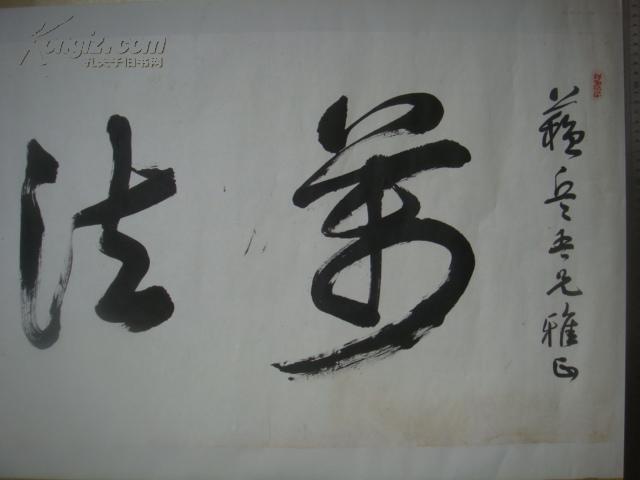 兵吾兄雅正
萬法
Kongfz.com
孔夫子旧书网